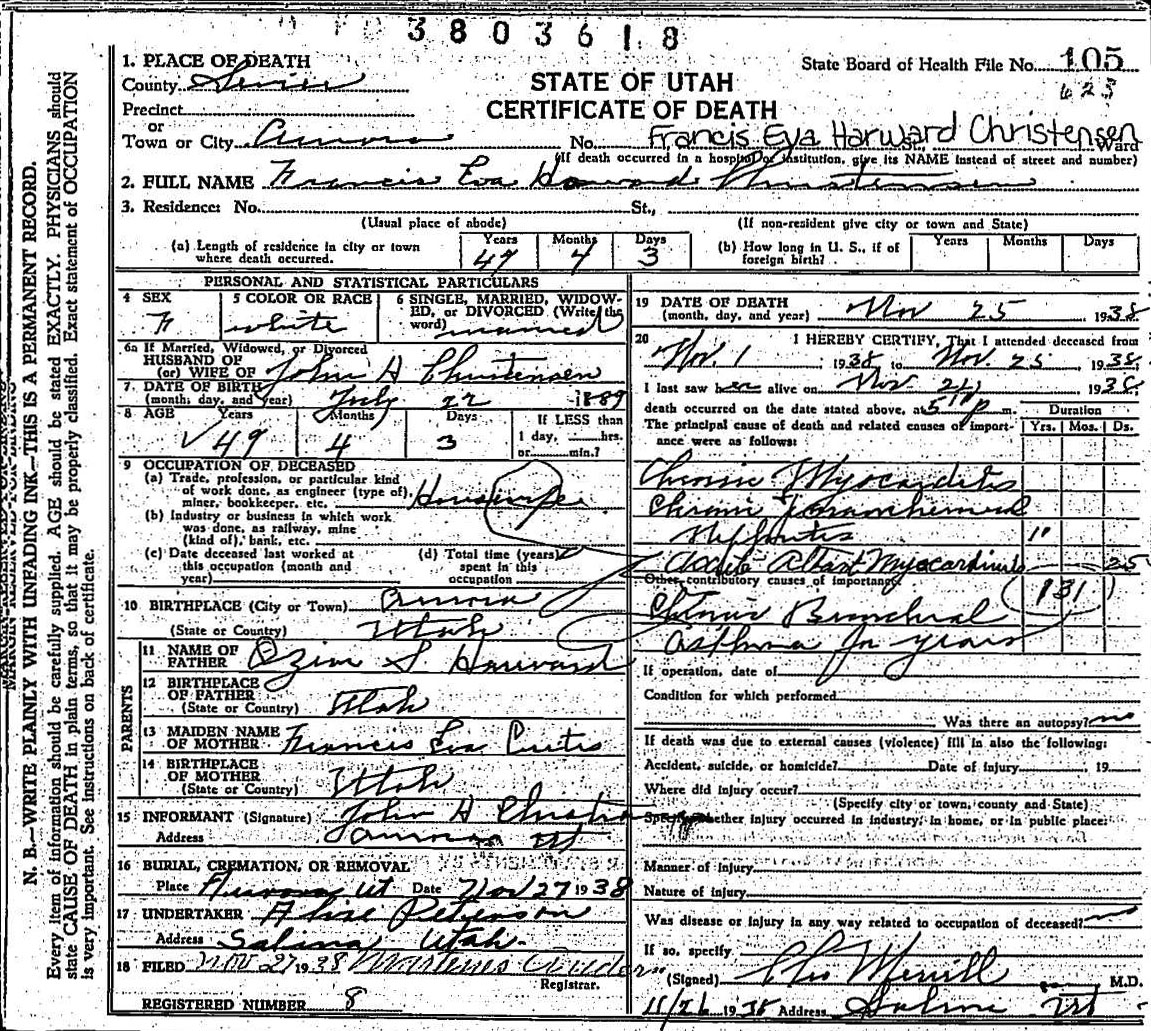 3803618
1. PLACE OF DEATH
State Board of Health File No. 105
County Sevier
STATE OF UTAH
623
Precinct
CERTIFICATE OF DEATH
or
Town or City Aurora No. Francis Eva Harward Christensen Ward
(If death occurred in a hospital or institution, give its NAME instead of street and number)
2. FULL NAME Francis Eva Harward Christensen
3. Residence: No. St.,
(Usual place of abode) (If non-resident give city or town and State)
(a) Length of residence in city or town where death occurred. Years 49 Months 4 Days 3
(b) How long in U. S., if of foreign birth? Years Months Days
PERSONAL AND STATISTICAL PARTICULARS
4 SEX F
5 COLOR OR RACE white
6 SINGLE, MARRIED, WIDOWED, or DIVORCED (Write the word) married
6a If Married, Widowed, or Divorced
HUSBAND OF
(or) WIFE OF John H Christensen
7 DATE OF BIRTH
(month, day, and year) July 22 1889
8 AGE Years 49 Months 4 Days 3
If LESS than
1 day, hrs.
or min.?
9 OCCUPATION OF DECEASED
(a) Trade, profession, or particular kind
of work done, as engineer (type of), Housewife
miner, bookkeeper, etc.
(b) Industry or business in which work
was done, as railway, mine
(kind of), bank, etc.
(c) Date deceased last worked at
this occupation (month and
year)
(d) Total time (years)
spent in this
occupation
10 BIRTHPLACE (City or Town) Aurora
(State or Country) Utah
PARENTS
11 NAME OF
FATHER Ozim S Harward
12 BIRTHPLACE
OF FATHER
(State or Country) Utah
13 MAIDEN NAME
OF MOTHER Francis Eva Curtis
14 BIRTHPLACE
OF MOTHER
(State or Country) Utah
15 INFORMANT (Signature) John H Christensen
Address Aurora Ut
16 BURIAL, CREMATION, OR REMOVAL
Place Aurora Ut Date Nov 27 1938
17 UNDERTAKER Peterson
Address Salina Utah
18 FILED Nov 27 1938
Registrar.
REGISTERED NUMBER 8
19 DATE OF DEATH
(month, day, and year) Nov 25 1938
20 I HEREBY CERTIFY, That I attended deceased from
Nov. 1 1938 to Nov. 25 1938,
I last saw her alive on Nov. 24 1938,
death occurred on the date stated above, at 5 p m.
Duration
The principal cause of death and related causes of importance were as follows:
Yrs. Mos. Ds.
Chronic Myocarditis
Chronic
Nephritis "
Myocarditis 25
Other contributory causes of importance
131
Chronic Bronchial
Asthma for years
If operation, date of
Condition for which performed
Was there an autopsy? no
If death was due to external causes (violence) fill in also the following:
Accident, suicide, or homicide? Date of injury , 19
Where did injury occur?
(Specify city or town, county and State)
Specify whether injury occurred in industry, in home, or in public place:
Manner of injury
Nature of injury
Was disease or injury in any way related to occupation of deceased? no
If so, specify
(Signed) Merrill M.D.
11/26 1938 Address Salina Ut
N. B.—WRITE PLAINLY WITH UNFADING INK—THIS IS A PERMANENT RECORD.
Every item of information should be carefully supplied. AGE should be stated EXACTLY. PHYSICIANS should
state CAUSE OF DEATH in plain terms, so that it may be properly classified. Exact statement of OCCUPATION
is very important. See instructions on back of certificate.